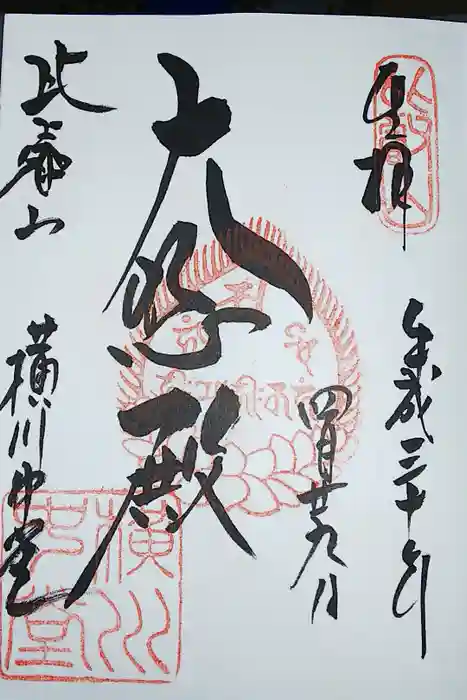 奉拝
平成三十年
四月廿九日
大悲殿
比叡山
横川中堂
横川
中堂